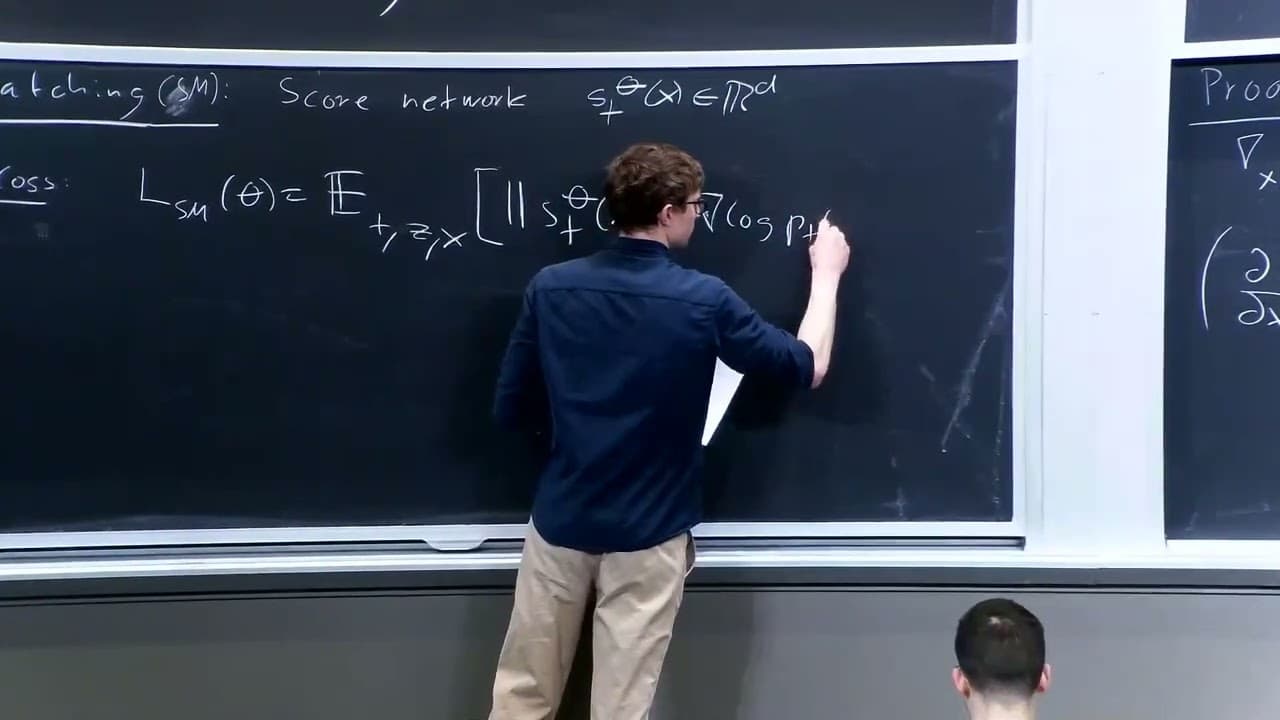 atching (SM): Score network s_t^θ(x) ∈ ℝ^d
Loss: L_SM(θ) = 𝔼_{t,z,x} [ ‖ s_t^θ( ∇ log p_t(
Proo
∇_x
( ∂
∂x